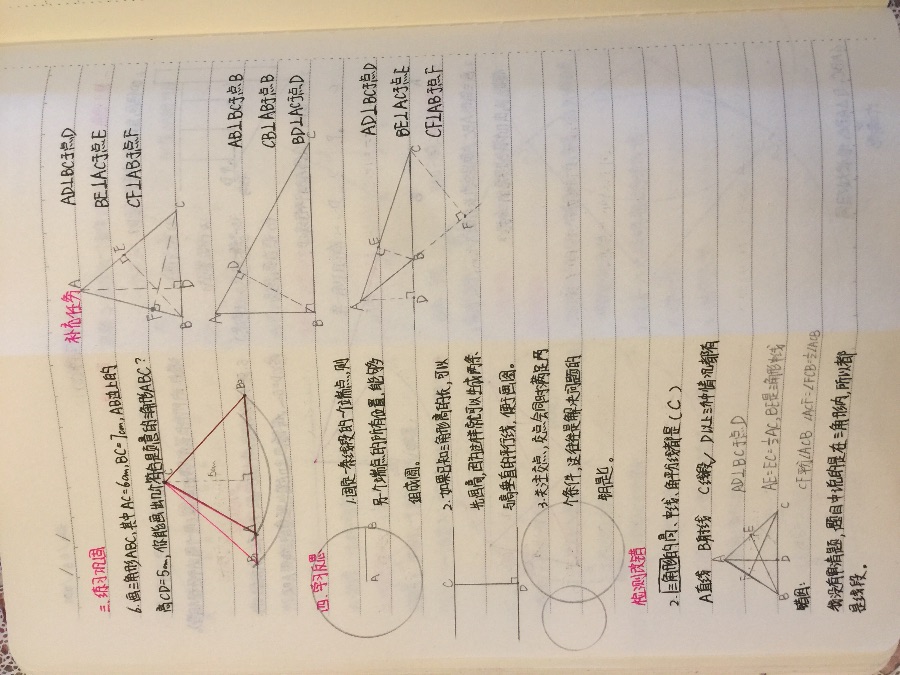 三.练习巩固
6.画三角形ABC,其中AC=6cm,BC=7cm,AB边上的
高CD=5cm,你能画出几个符合题意的三角形ABC?
C
5cm
A
B
四.学习反思
1.固定一条线段的一个端点,则
另一个端点的所有位置,能够
组成圆。
A
B
2.如果已知三角形高的长,可以
先画高,因为这样就可以生成两条
与高垂直的平行线,便于画图。
C
D
3.关注交点,交点会同时满足两
个条件,这往往是解决问题的
钥匙。
检测改错
2.三角形的高、中线、角平分线都是(C)
A直线 B射线 C线段 D以上三种情况都有
AD⊥BC于点D
AE=EC=½AC,BE是三角形中线
CF平分∠ACB ∠ACF=∠FCB=½∠ACB
A
E
F
B
D
C
错因:
我没有审清题,题目中说的是在三角形内,所以都
是线段。
补充任务
A
F
E
B
D
C
AD⊥BC于点D
BE⊥AC于点E
CF⊥AB于点F
A
D
B
C
AB⊥BC于点B
CB⊥AB于点B
BD⊥AC于点D
A
E
D
B
C
F
AD⊥BC于点D
BE⊥AC于点E
CF⊥AB于点F